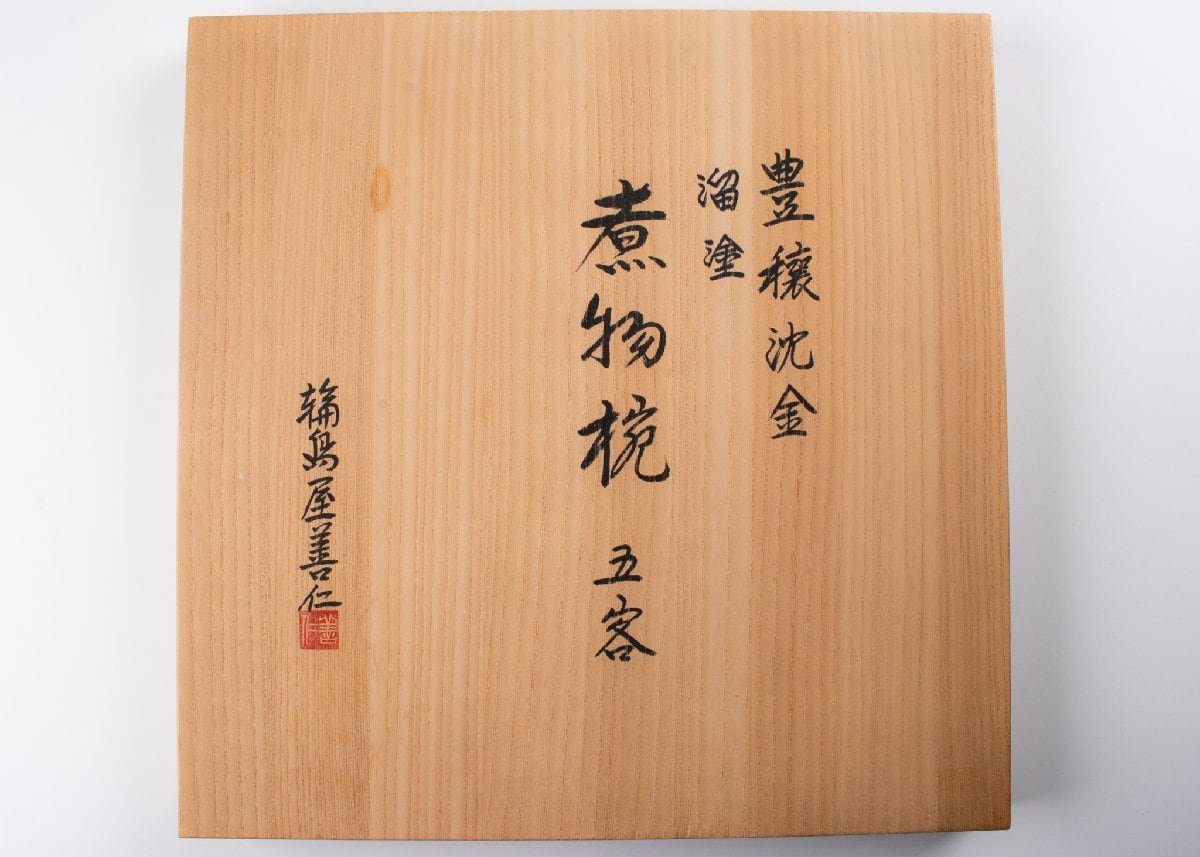 豊穣沈金
溜塗
煮物椀 五客
輪島屋善仁
善仁